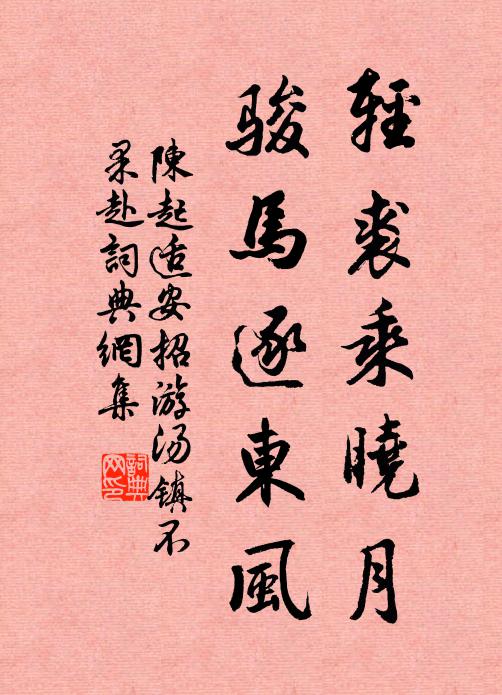 輕裘乘曉月
駿馬逐東風
陳起适安招游汤镇不
果赴詞典網集
詞典網印